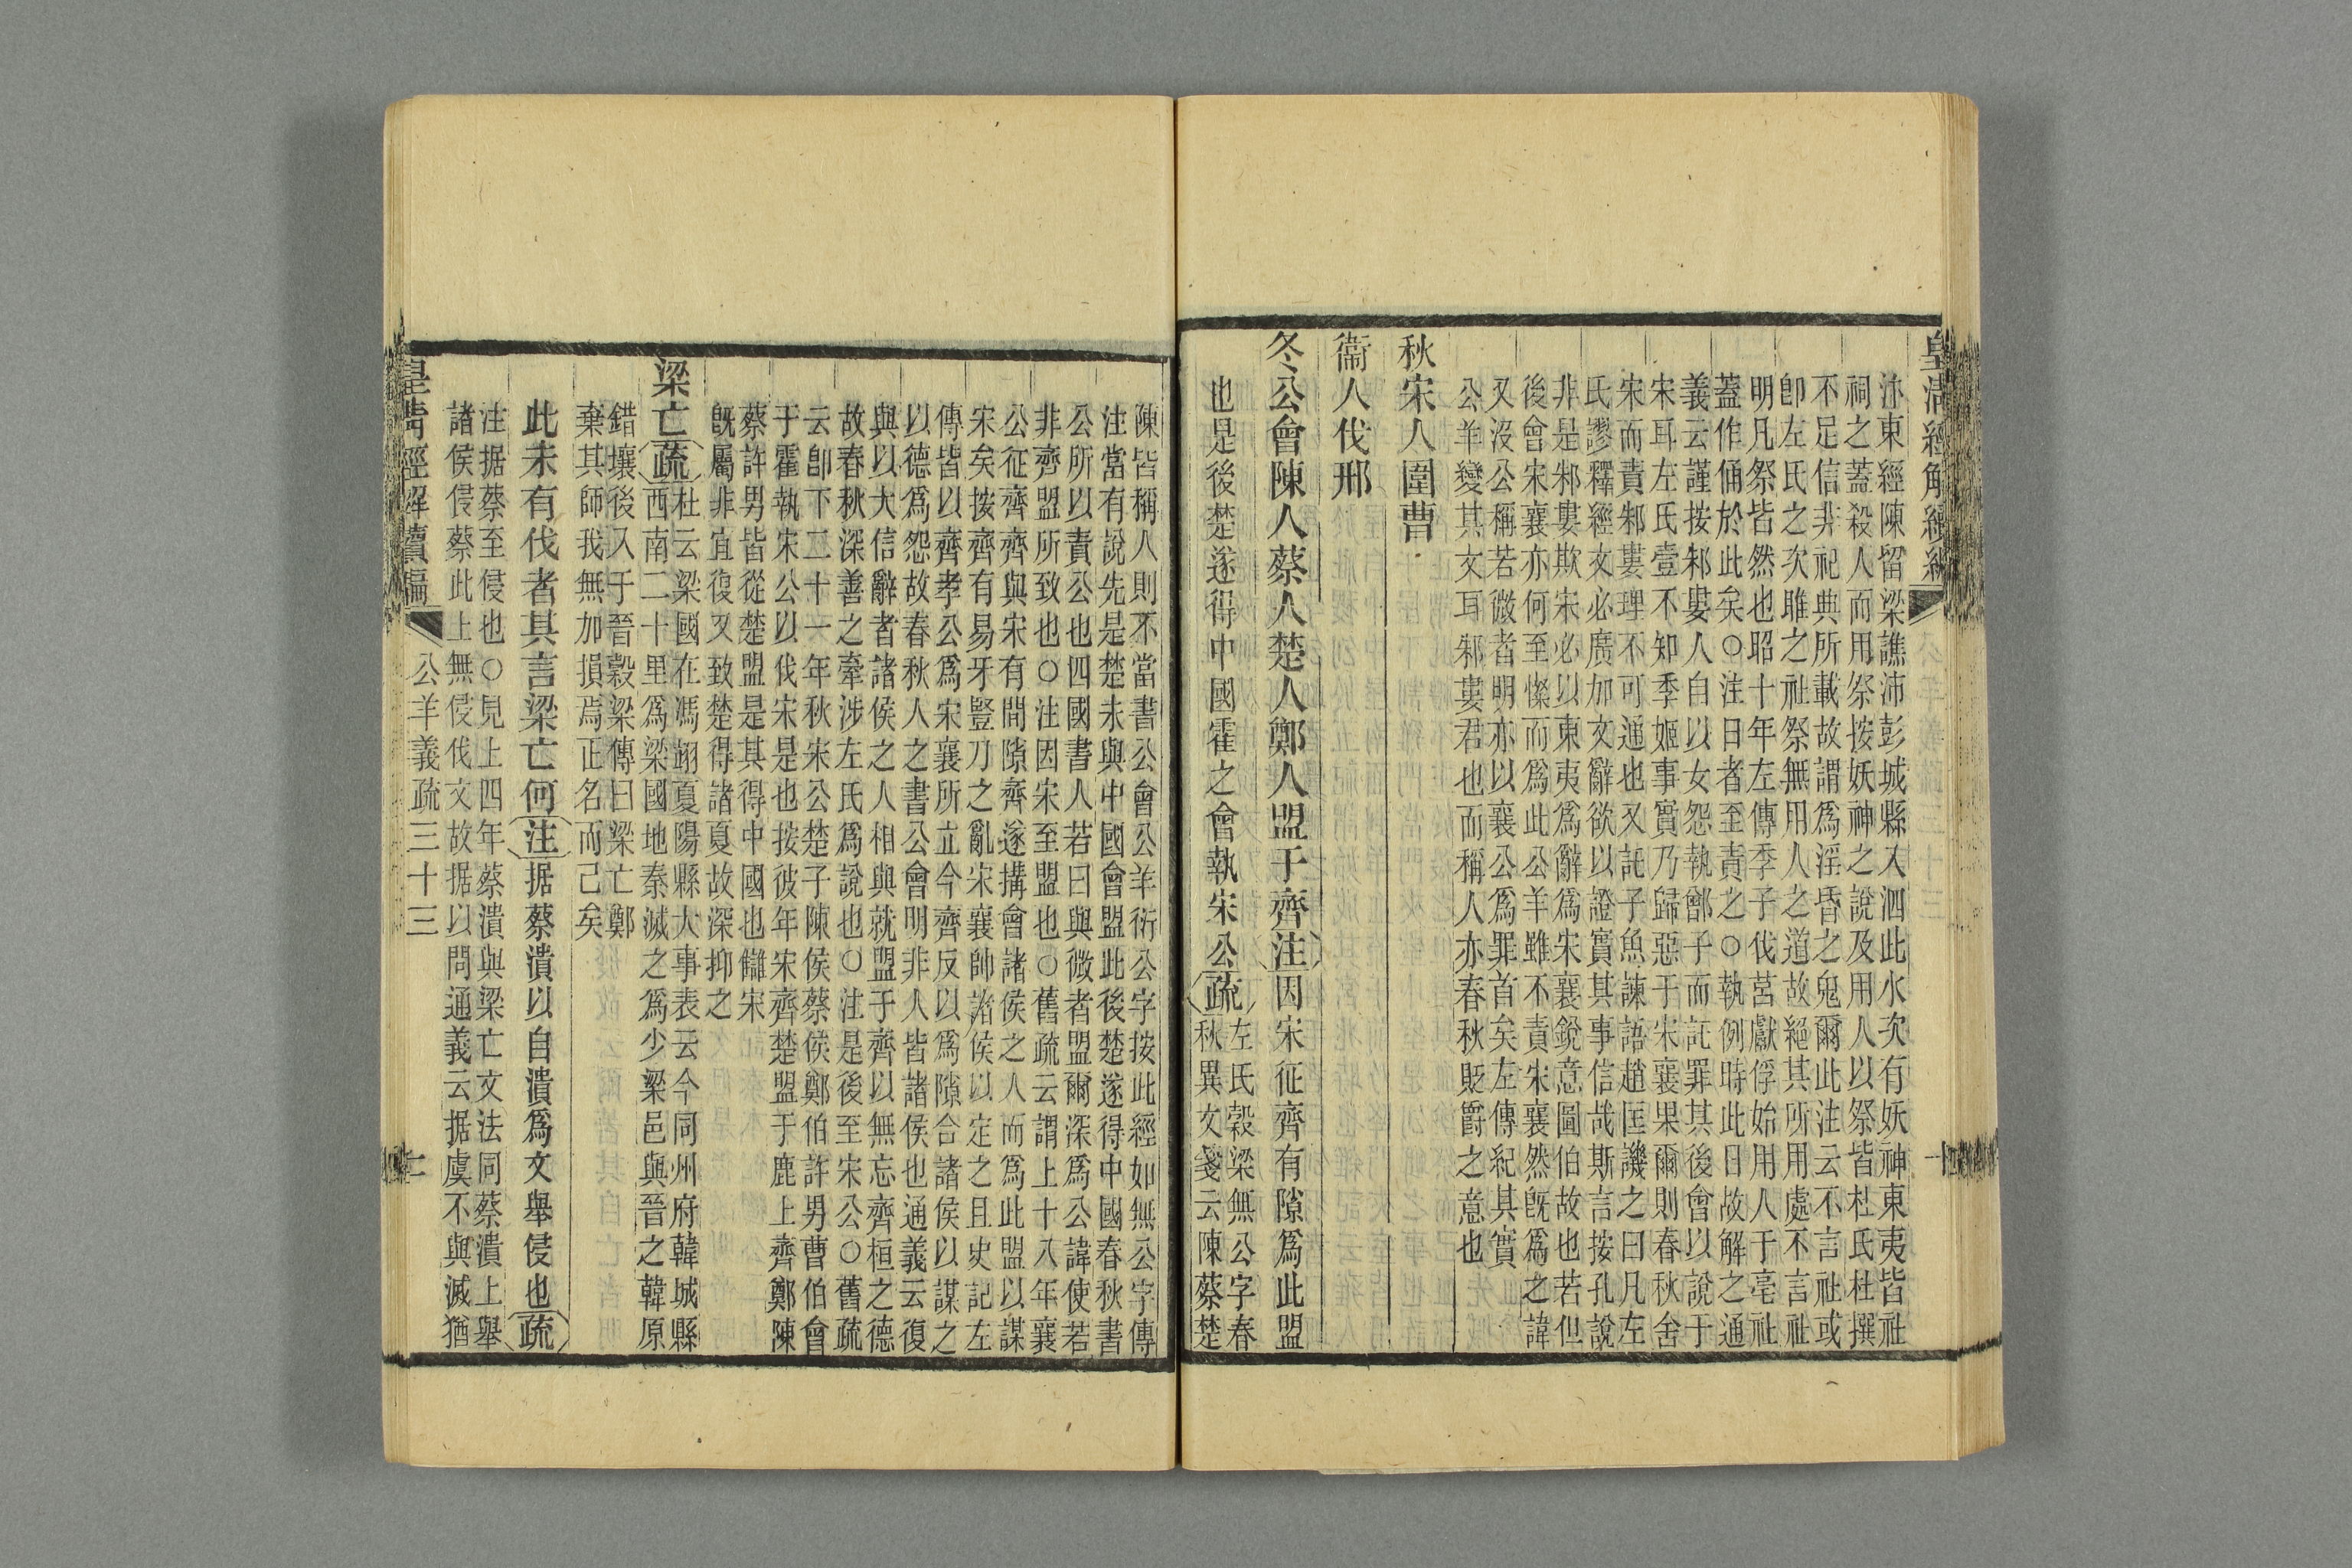 皇清經解續編
沛東經陳留梁譙沛彭城縣入泗此水次有妖神東夷皆社
祠之蓋殺人而用祭按妖神之說及用人以祭皆杜氏杜撰
不足信非祀典所載故謂爲淫昏之鬼爾此注云不言社或
卽左氏之次睢之社祭無用人之道故絕其所用處不言社
明凡祭皆然也昭十年左傳季子伐莒獻俘始用人于亳社
蓋作俑於此矣○注日者至責之○執例時此日故解之通
義云謹按邾婁人自以女怨執鄫子而託罪其後會以說于
宋耳左氏壹不知季姬事實乃歸惡于宋襄果爾則春秋舍
宋而責邾婁理不可通也又託子魚諫語趙匡譏之曰凡左
氏謬釋經文必廣加文辭欲以證實其事信哉斯言按孔說
非是邾婁欺宋必以東夷爲辭爲朱襄銳意圖伯故也若但
後會宋襄亦何至慘而爲此公羊雖不責宋襄然旣爲之諱
又沒公稱若微者明亦以襄公爲罪首矣左傳紀其實
公羊變其文耳邾婁君也而稱人亦春秋貶爵之意也
秋宋人圍曹
衞人伐邢
冬公會陳人蔡人楚人鄭人盟于齊注因宋征齊有隙爲此盟
也是後楚遂得中國霍之會執宋公疏左氏穀梁無公字春
秋異文箋云陳蔡楚
陳皆稱人則不當書公會公羊衍公字按此經如無公字傳
注當有說先是楚未與中國會盟此後楚遂得中國春秋書
公所以責公也四國書人若曰與微者盟爾深爲公諱使若
非齊盟所致也○注因宋至盟也○舊疏云謂上十八年襄
公征齊齊與宋有間隙齊遂搆會諸侯之人而爲此盟以謀
宋矣按齊有易牙豎刀之亂宋襄帥諸侯以定之且史記左
傳皆以齊孝公爲宋襄所立今齊反以爲隙合諸侯以謀之
以德爲怨故春秋人之書公會明非人皆諸侯也通義云復
與以大信辭者諸侯之人相與就盟于齊以無忘齊桓之德
故春秋深善之牽涉左氏爲說也○注是後至宋公○舊疏
云卽下二十一年秋宋公楚子陳侯蔡侯鄭伯許男曹伯會
于霍執宋公以伐宋是也按彼年宋齊楚盟于鹿上齊鄭陳
蔡許男皆從楚盟是其得中國也讎宋
旣屬非宜復又致楚得諸夏故深抑之
梁亡疏杜云梁國在馮翊夏陽縣大事表云今同州府韓城縣
西南二十里爲梁國地秦滅之爲少梁邑與晉之韓原
錯壤後入于晉穀梁傳曰梁亡鄭
棄其師我無加損焉正名而已矣
此未有伐者其言梁亡何注据蔡潰以自潰爲文舉侵也疏
注据蔡至侵也○見上四年蔡潰與梁亡文法同蔡潰上舉
諸侯侵蔡此上無侵伐文故据以問通義云据虞不與滅猶
皇淸經解續編 公羊義疏三十三 二